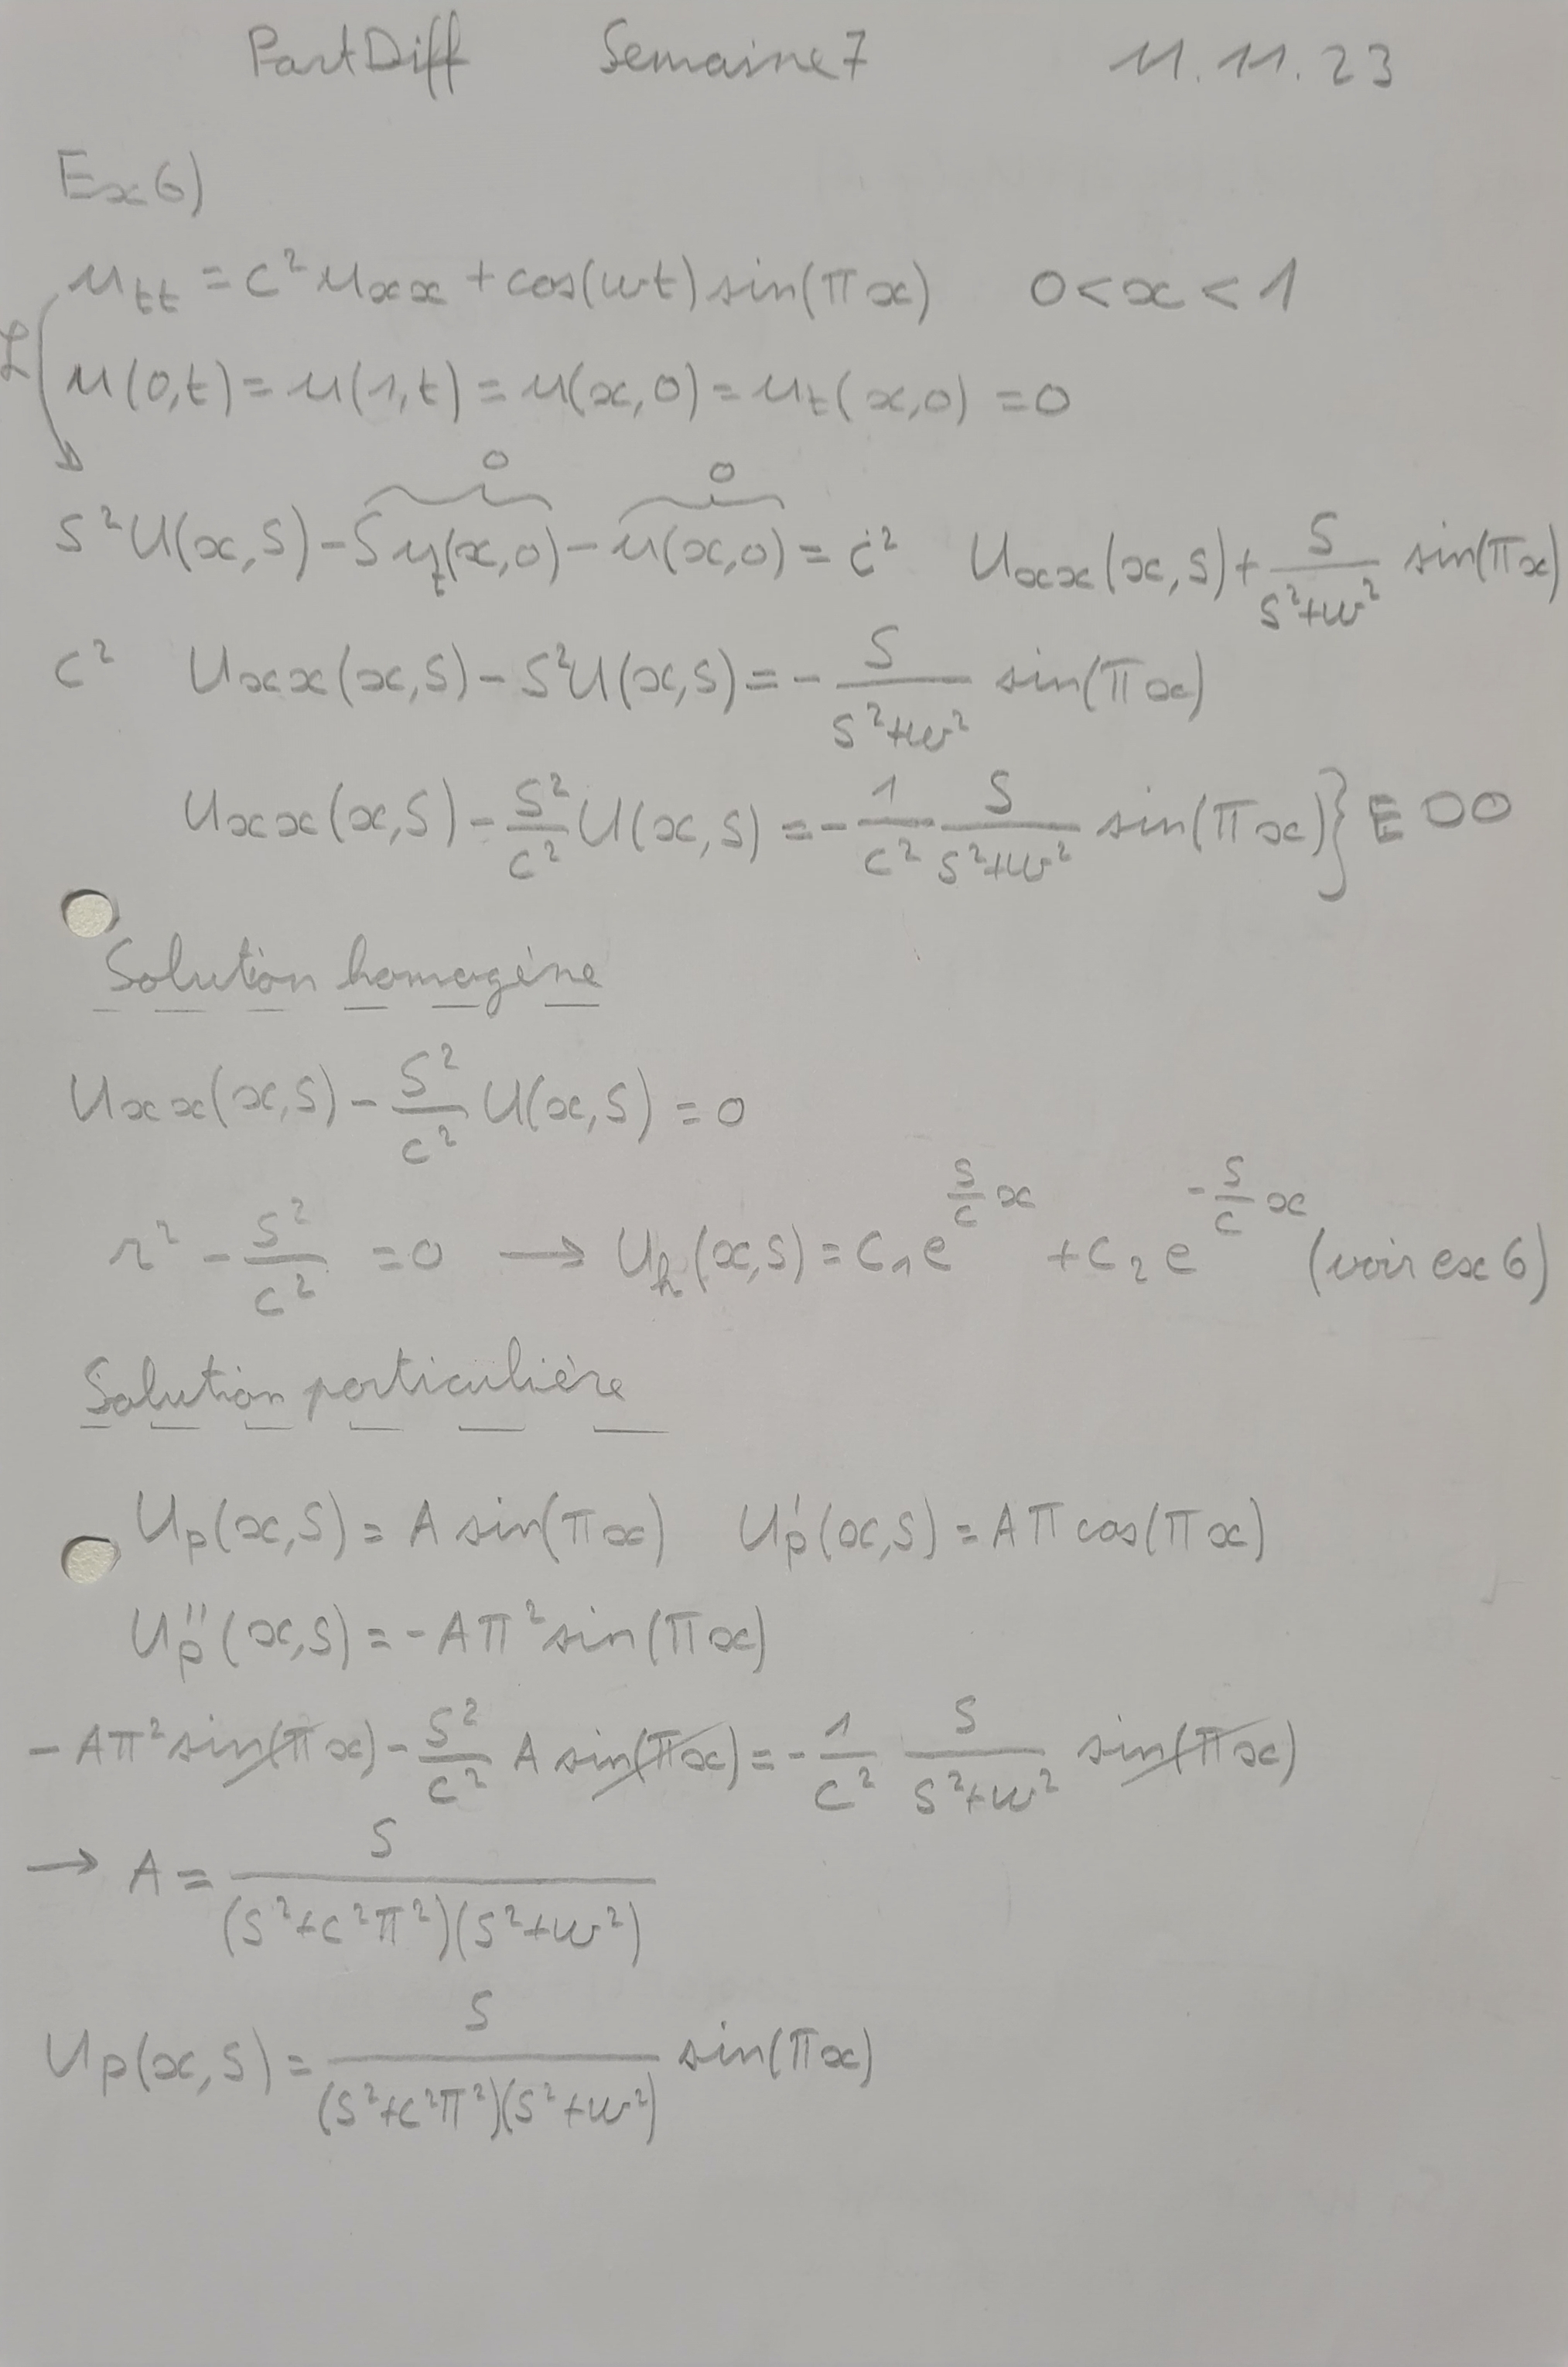 PartDiff Semaine 7 11.11.23
Ex 6)
u_tt = c² u_xx + cos(wt) sin(πx) 0 < x < 1
ℒ
u(0,t) = u(1,t) = u(x,0) = u_t(x,0) = 0
0 0
s²U(x,s) - s u_t(x,0) - u(x,0) = c² U_xx(x,s) + s/(s²+w²) sin(πx)
c² U_xx(x,s) - s²U(x,s) = - s/(s²+w²) sin(πx)
U_xx(x,s) - s²/c² U(x,s) = - 1/c² s/(s²+w²) sin(πx) } EDO
Solution homogène
U_xx(x,s) - s²/c² U(x,s) = 0
r² - s²/c² = 0 → U_h(x,s) = C₁e^(s/c x) + C₂e^(-s/c x) (voir ex 6)
Solution particulière
U_p(x,s) = A sin(πx) U_p'(x,s) = Aπ cos(πx)
U_p''(x,s) = -Aπ² sin(πx)
-Aπ² sin(πx) - s²/c² A sin(πx) = - 1/c² s/(s²+w²) sin(πx)
→ A = s/((s²+c²π²)(s²+w²))
U_p(x,s) = s/((s²+c²π²)(s²+w²)) sin(πx)